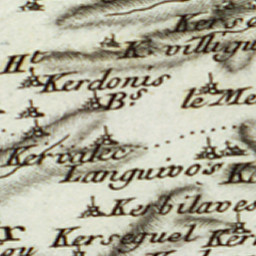 K. villigu
Ht
Kerdonis
Bs
le Me
Kervalec
Languivos
Kerbilaves
Kerseguel